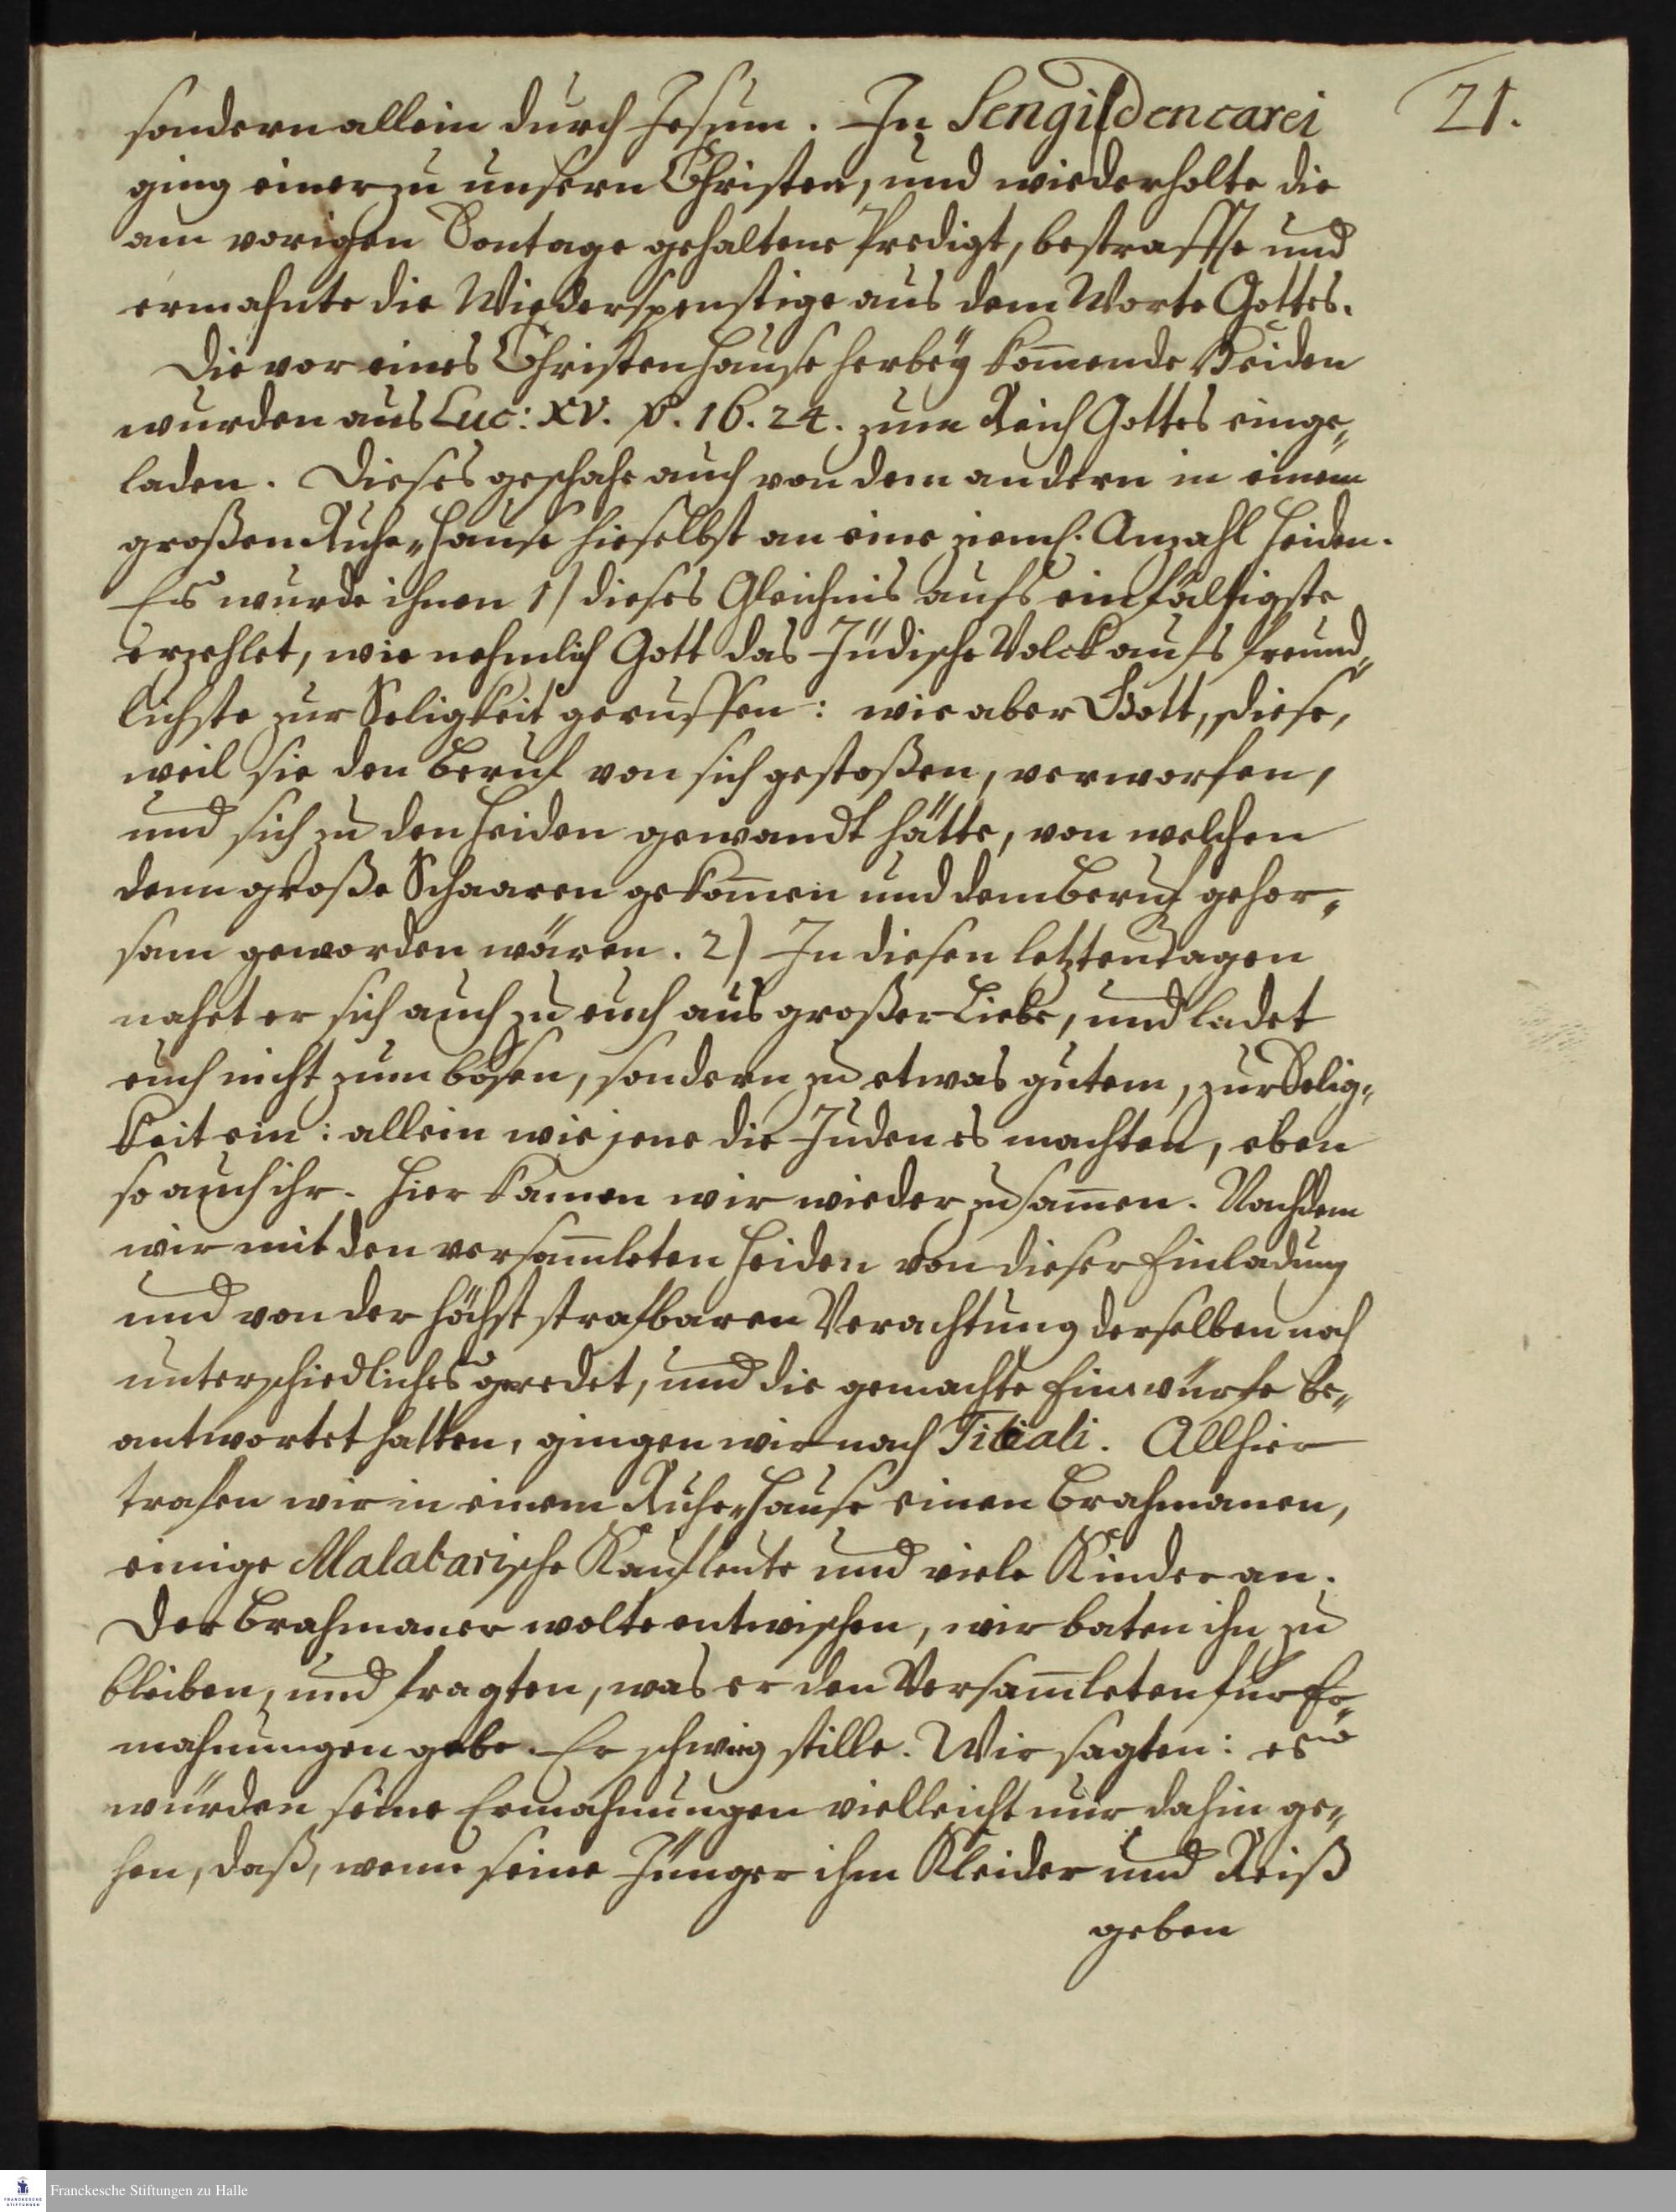 21.
sondern allein durch Jesum. In Sengidencarei
ging einer zu unsern Christen, und wiederholte die
am vorigen Sontage gehaltene Predigt, bestraffte und
ermahnte die Wiederspenstige aus dem Worte Gottes.
Die vor eines Christen Hause herbey kom̄ende Heiden
wurden aus Luc: XV. v. 16. 24. zum Reich Gottes einge„
laden. Dieses geschahe auch von dem andern in einem
großen Ruhe„Hause hieselbst an eine zieml. Anzahl Heiden.
Es wurde ihnen 1) dieses Gleichnis aufs einfältigste
erzehlet, wie nehmlich Gott das Jüdische Volck aufs freund„
lichste zur Seligkeit geruffen: wie aber Gott, diese,
weil sie den Beruf von sich gestoßen, verworfen,
und sich zu den Heiden gewandt hätte, von welchen
denn große Schaaren gekom̄en und dem Beruf gehor„
sam geworden wären. 2) In diesen letzten Tagen
nahet er sich auch zu euch aus großer Liebe, und ladet
euch nicht zum bösen, sondern zu etwas gutem, zur Selig„
keit ein: allein wie jene die Juden es machten, eben
so auch ihr. Hier kamen wir wieder zusam̄en. Nachdem
wir mit den versam̄leten Heiden von dieser Einladung
und von der höchst strafbaren Verachtung derselben noch
unterschiedliches geredet, und die gemachte Einwürfe be„
antwortet hatten, gingen wir nach Titiali. Allhier
trafen wir in einem Ruhe„Hause einen Brahmanen,
einige Malabarische Kaufleute und viele Kinder an.
Der Brahmaner wolte entwischen, wir baten ihn zu
bleiben, und fragten, was er den Versam̄leten für Er„
mahnungen gebe. Er schwieg stille. Wir sagten: es
würden seine Ermahnungen vielleicht nur dahin ge„
hen, daß, wenn seine Jünger ihm Kleider und Reiß
geben
FRANCKESCHE STIFTUNGEN
Franckesche Stiftungen zu Halle